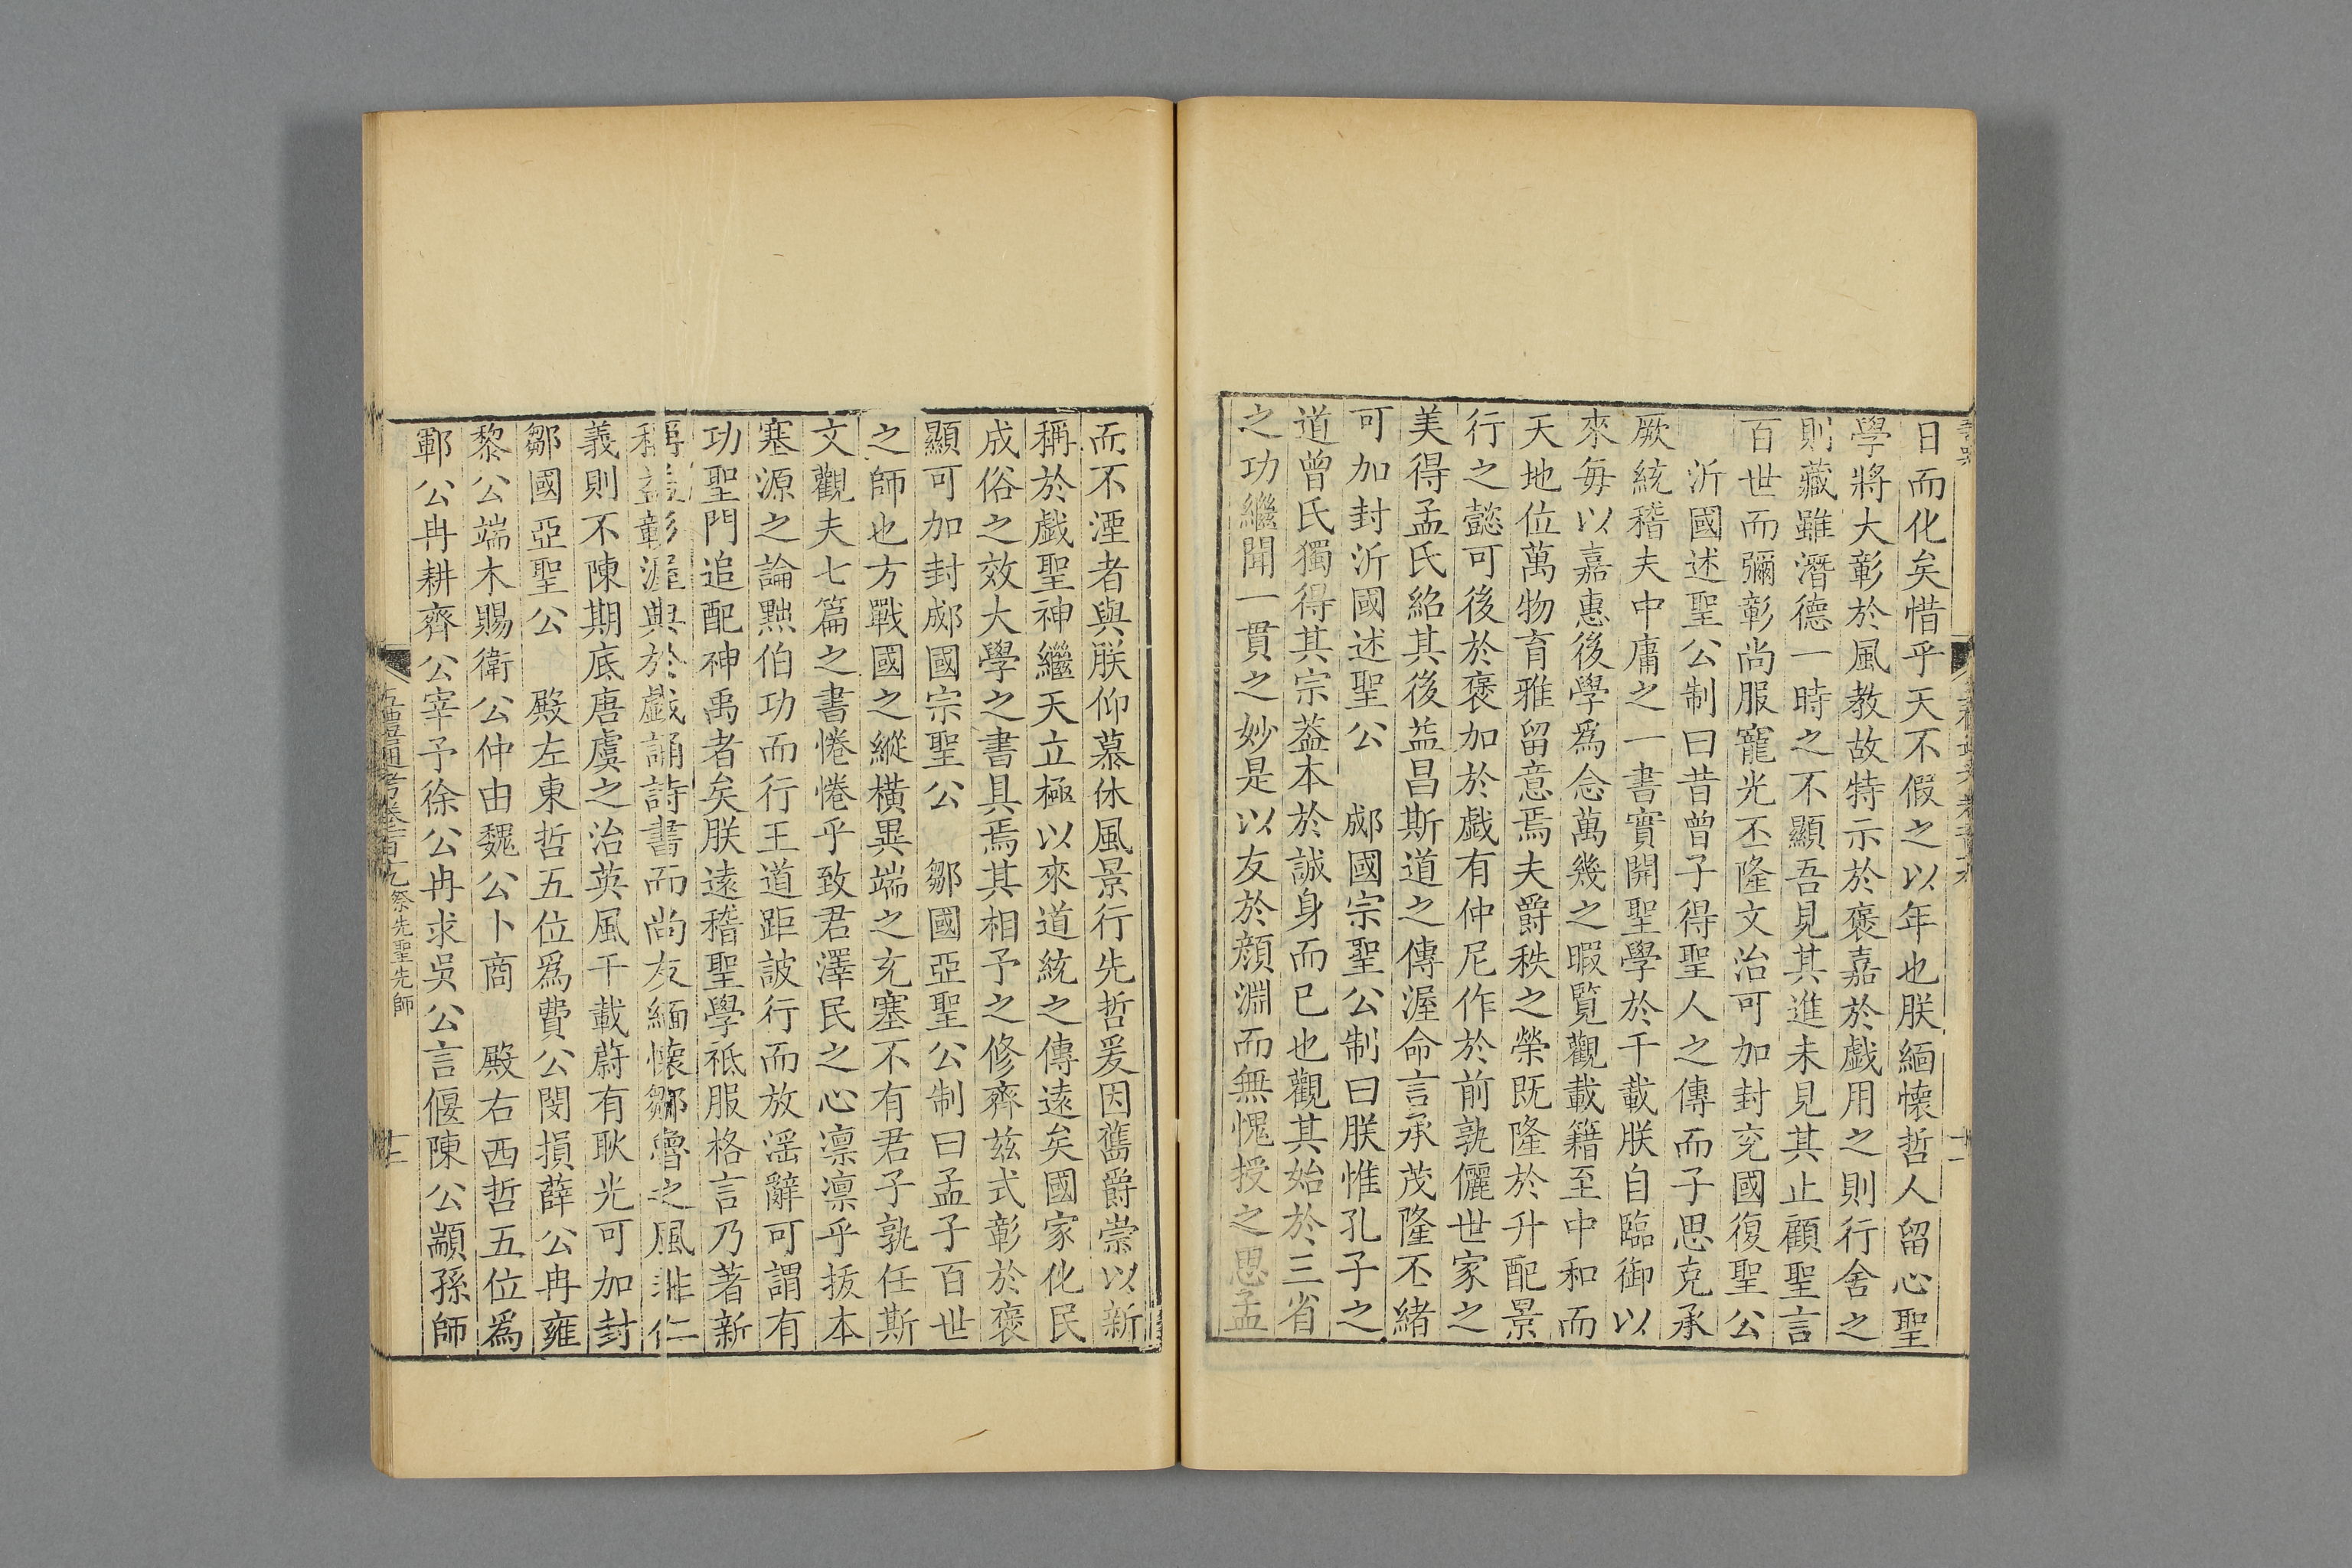 日而化矣惜乎天不假之以年也朕緬懷哲人留心聖
學將大彰於風教故特示於褒嘉於戲用之則行舍之
則藏雖潛德一時之不顯吾見其進未見其止顧聖言
百世而彌彰尚服寵光丕隆文治可加封兖國復聖公
沂國述聖公制曰昔曾子得聖人之傳而子思克承
厥統稽夫中庸之一書實開聖學於千載朕自臨御以
來每以嘉惠後學爲念萬幾之暇覧觀載籍至中和而
天地位萬物育雅留意焉夫爵秩之榮既隆於升配景
行之懿可後於褒加於戲有仲尼作於前孰儷世家之
美得孟氏紹其後益昌斯道之傳渥命言承茂隆丕緒
可加封沂國述聖公　郕國宗聖公制曰朕惟孔子之
道曾氏獨得其宗葢本於誠身而已也觀其始於三省
之功繼聞一貫之妙是以友於顔淵而無愧授之思孟
而不湮者與朕仰慕休風景行先哲爰因舊爵崇以新
稱於戲聖神繼天立極以來道統之傳遠矣國家化民
成俗之效大學之書具焉其相予之修齊兹式彰於褒
顯可加封郕國宗聖公　鄒國亞聖公制曰孟子百世
之師也方戰國之縱橫異端之充塞不有君子孰任斯
文觀夫七篇之書惓惓乎致君澤民之心凛凛乎拔本
塞源之論黜伯功而行王道距詖行而放淫辭可謂有
功聖門追配神禹者矣朕遠稽聖學祗服格言乃著新
稱益彰渥典於戲誦詩書而尚友緬懷鄒魯之風非仁
義則不陳期底唐虞之治英風千載蔚有耿光可加封
鄒國亞聖公　殿左東哲五位爲費公閔損薛公冉雍
黎公端木賜衛公仲由魏公卜商　殿右西哲五位爲
鄆公冉耕齊公宰予徐公冉求吳公言偃陳公顓孫師
五禮通考卷一百十九祭先聖先師　十二